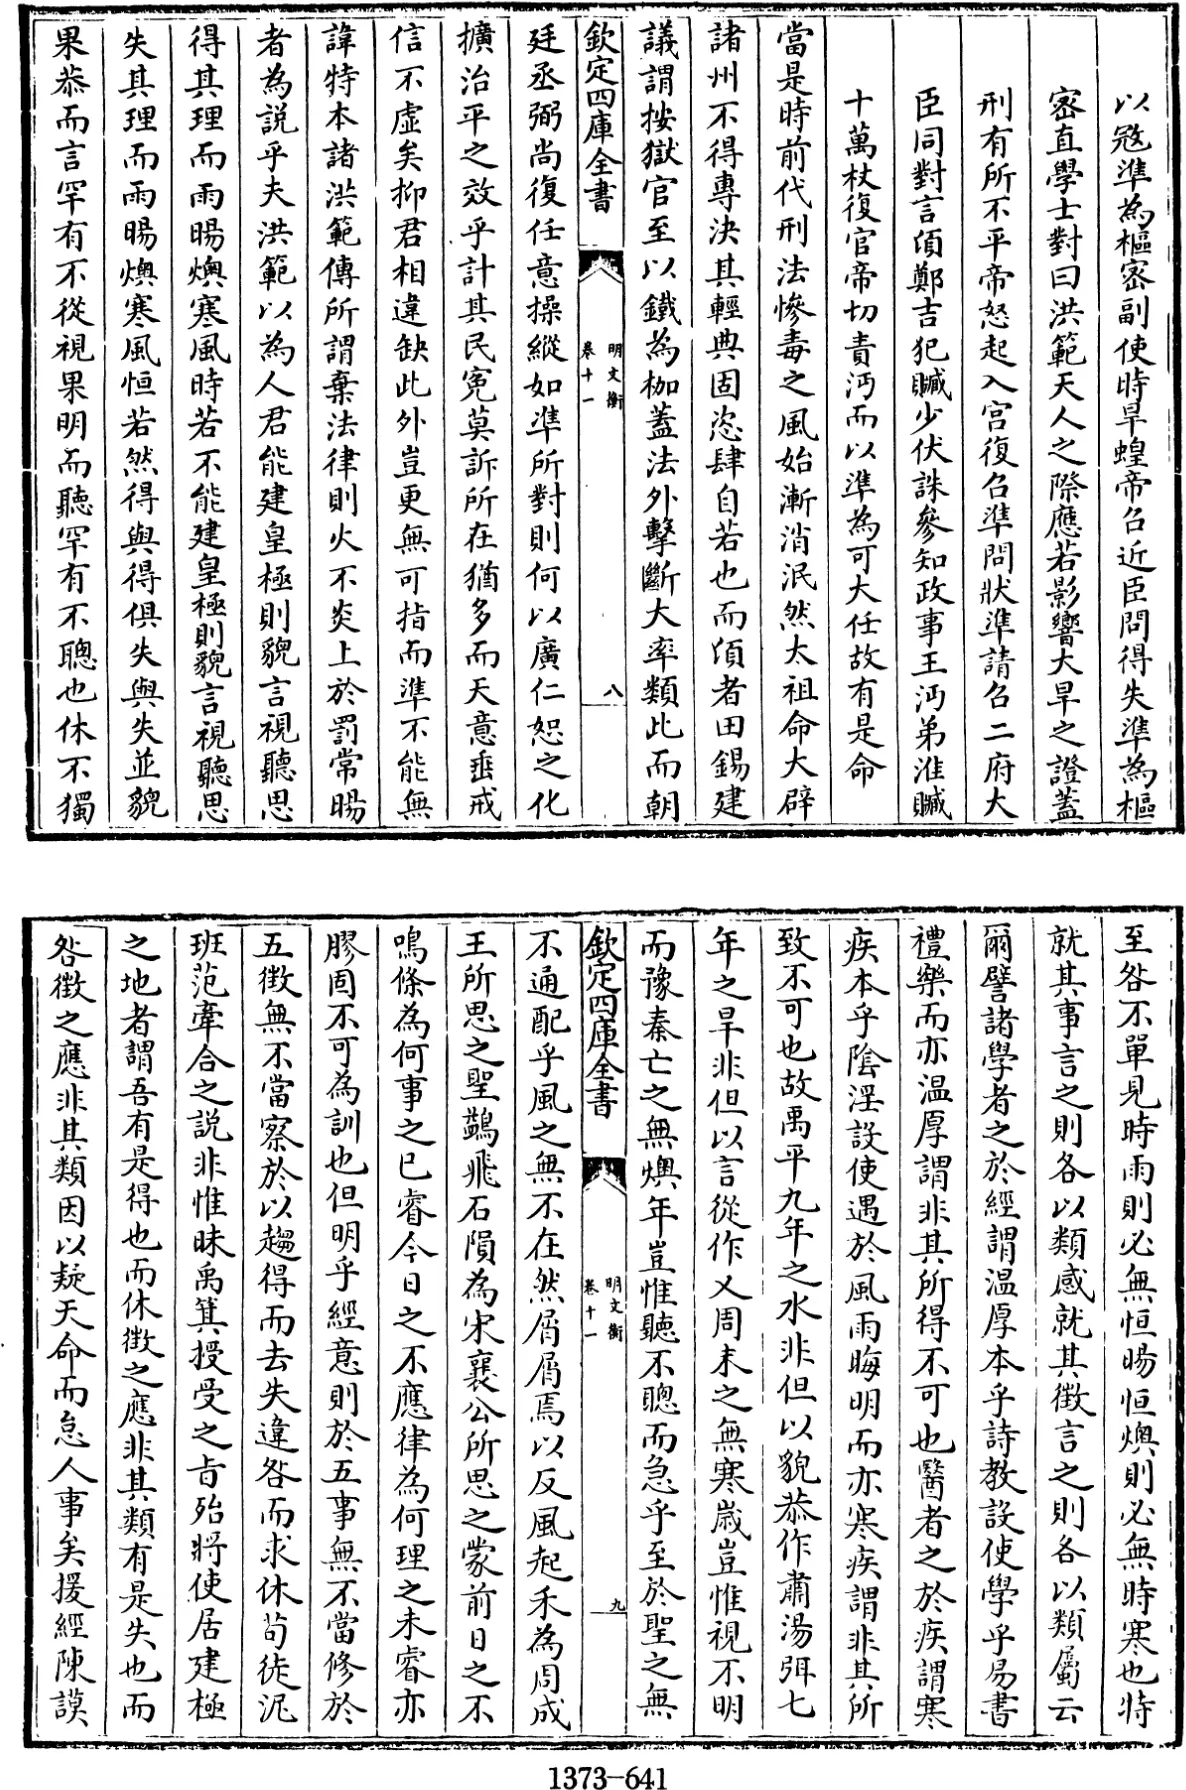 以冦準為樞宻副使時旱蝗帝召近臣問得失準為樞
宻直學士對曰洪範天人之際應若影響大旱之證蓋
刑有所不平帝怒起入宫復召準問狀準請召二府大
臣同對言頃鄭吉犯贓少伏誅參知政事王沔弟淮贓
十萬杖復官帝切責沔而以準為可大任故有是命
當是時前代刑法惨毒之風始漸消泯然太祖命大辟
諸州不得專決其輕典固恣肆自若也而頃者田錫建
議謂按獄官至以鐵為枷蓋法外擊斷大率類此而朝
欽定四庫全書
明文衡
卷十一
八
廷丞弼尚復任意操縱如準所對則何以廣仁恕之化
擴治平之效乎計其民寃莫訴所在猶多而天意垂戒
信不虛矣抑君相違缺此外豈更無可指而準不能無
諱特本諸洪範傳所謂棄法律則火不炎上於罰常暘
者為説乎夫洪範以為人君能建皇極則貌言視聽思
得其理而雨暘燠寒風時若不能建皇極則貌言視聽思
失其理而雨暘燠寒風恒若然得與得俱失與失並貌
果恭而言罕有不從視果明而聽罕有不聰也休不獨
至咎不單見時雨則必無恒暘恒燠則必無時寒也特
就其事言之則各以類感就其徵言之則各以類屬云
爾譬諸學者之於經謂温厚本乎詩教設使學乎易書
禮樂而亦温厚謂非其所得不可也醫者之於疾謂寒
疾本乎陰淫設使遇於風雨晦明而亦寒疾謂非其所
致不可也故禹平九年之水非但以貌恭作肅湯弭七
年之旱非但以言從作乂周末之無寒嵗豈惟視不明
而豫秦亡之無燠年豈惟聽不聰而急乎至於聖之無
欽定四庫全書
明文衡
卷十一
九
不通配乎風之無不在然屑屑焉以反風起禾為周成
王所思之聖鷁飛石隕為宋襄公所思之蒙前日之不
鳴條為何事之已睿今日之不應律為何理之未睿亦
膠固不可為訓也但明乎經意則於五事無不當修於
五徵無不當察於以趨得而去失違咎而求休茍徒泥
班范牽合之説非惟昧禹箕授受之旨殆將使居建極
之地者謂吾有是得也而休徵之應非其類有是失也而
咎徵之應非其類因以疑天命而怠人事矣援經陳謨
1373-641